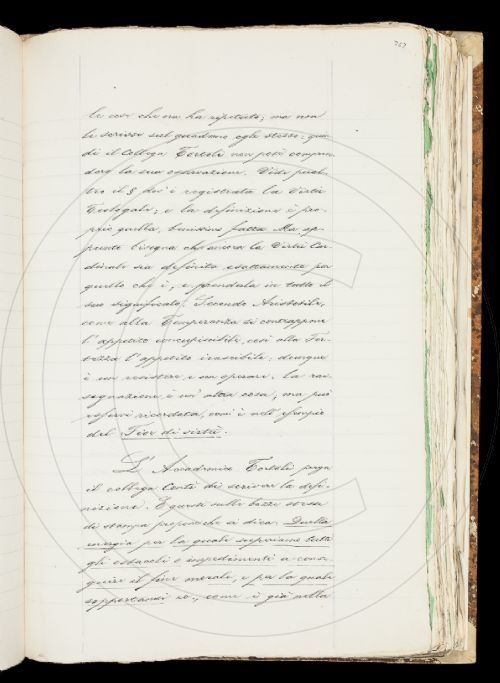 367
le cose che ora ha ripetuto; ma non
le scrisse sul quaderno egli stesso: quin-
di il Collega Tortoli non potè compren-
dere la sua osservazione. Vide piut-
to il § dov'è registrata la Virtù
Teologale; e la definizione è pro-
prio quella, benissimo fatta. Ma ap-
punto bisogna che ancora la Virtù Car-
dinale sia definita esattamente per
quello che è, e prendola in tutto il
suo significato. Secondo Aristotile,
come alla Temperanza si contrappone
l'appetito concupiscibile, così alla For-
tezza l'appetito irascibile; dunque
è un resistere e un operare. La ras-
segnazione è un'altra cosa; ma può
esservi ricordata, com'è nell'esempio
del Fior di virtù.
L'Accademico Tortoli prega
il collega Conti di scrivere la defi-
nizione. E questi sulle bozze stesse
di stampa propone che si dica: Quella
energia per la quale superiamo tutti
gli ostacoli e impedimenti a conse-
guire il fine morale, e per la quale
sopportansi ec., come è già nella